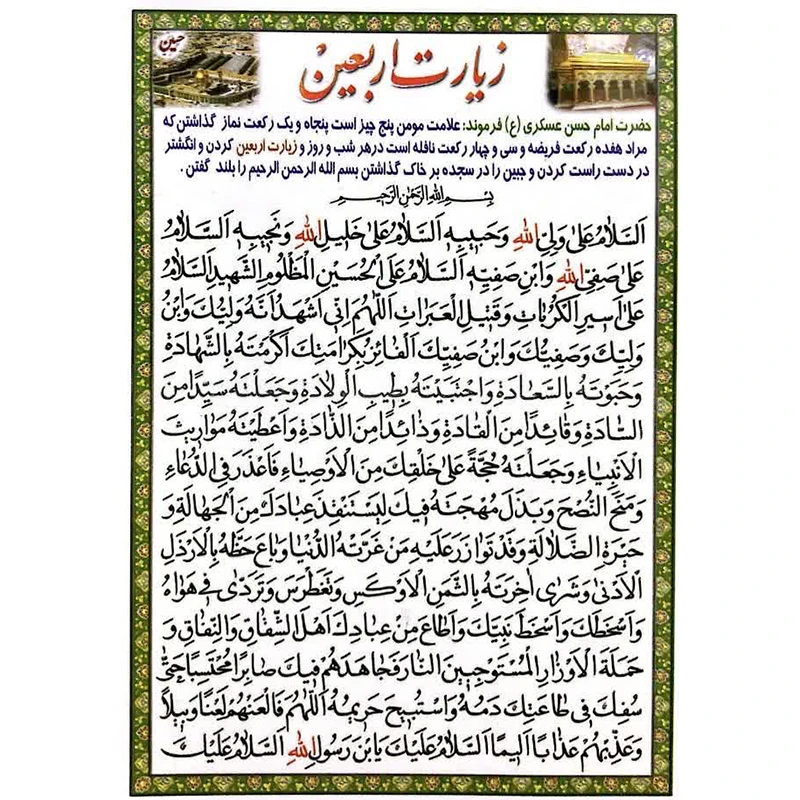 زیارت اربعین
حسین
حضرت امام حسن عسکری (ع) فرموند: علامت مومن پنج چیز است پنجاه و یک رکعت نماز گذاشتن که
مراد هفده رکعت فریضه و سی و چهار رکعت نافله است درهر شب و روز و زیارت اربعین کردن و انگشتر
در دست راست کردن و جبین را در سجده بر خاک گذاشتن بسم الله الرحمن الرحیم را بلند گفتن .
بِسْمِ اللهِ الرَّحْمٰنِ الرَّحِيمِ
اَلسَّلامُ عَلىٰ وَلِىِّ اللهِ وَحَبيبِهِ اَلسَّلامُ عَلىٰ خَليلِ اللهِ وَنَجيبِهِ اَلسَّلامُ
عَلىٰ صَفِىِّ اللهِ وَابْنِ صَفِيِّهِ اَلسَّلامُ عَلَى الْحُسَيْنِ الْمَظْلُومِ الشَّهيدِ اَلسَّلامُ
عَلىٰ اَسيرِ الْكُرُباتِ وَقَتيلِ الْعَبَراتِ اَللّٰهُمَّ اِنّى اَشْهَدُ اَنَّهُ وَلِيُّكَ وَابْنُ
وَلِيِّكَ وَصَفِيُّكَ وَابْنُ صَفِيِّكَ الْفائِزُ بِكَرامَتِكَ اَكْرَمْتَهُ بِالشَّهادَةِ
وَحَبَوْتَهُ بِالسَّعادَةِ وَاجْتَبَيْتَهُ بِطيبِ الْوِلادَةِ وَجَعَلْتَهُ سَيِّدًا مِنَ
السّادَةِ وَقائِدًا مِنَ الْقادَةِ وَذائِدًا مِنَ الذّادَةِ وَاَعْطَيْتَهُ مَواريثَ
الْاَنْبِياءِ وَجَعَلْتَهُ حُجَّةً عَلىٰ خَلْقِكَ مِنَ الْاَوْصِياءِ فَاَعْذَرَ فِى الدُّعاءِ
وَمَنَحَ النُّصْحَ وَبَذَلَ مُهْجَتَهُ فيكَ لِيَسْتَنْقِذَ عِبادَكَ مِنَ الْجَهالَةِ وَ
حَيْرَةِ الضَّلالَةِ وَقَدْ تَوازَرَ عَلَيْهِ مَنْ غَرَّتْهُ الدُّنْيا وَباعَ حَظَّهُ بِالْاَرْذَلِ
الْاَدْنىٰ وَشَرىٰ اخِرَتَهُ بِالثَّمَنِ الْاَوْكَسِ وَتَغَطْرَسَ وَتَرَدّىٰ فى هَواهُ
وَاَسْخَطَكَ وَاَسْخَطَ نَبِيَّكَ وَاَطاعَ مِنْ عِبادِكَ اَهْلَ الشِّقاقِ وَالنِّفاقِ وَ
حَمَلَةَ الْاَوْزارِ الْمُسْتَوْجِبينَ النّارَ فَجاهَدَهُمْ فيكَ صابِرًا مُحْتَسِبًا حَتّىٰ
سُفِكَ فى طاعَتِكَ دَمُهُ وَاسْتُبيحَ حَريمُهُ اَللّٰهُمَّ فَالْعَنْهُمْ لَعْنًا وَبيلاً
وَعَذِّبْهُمْ عَذابًا اَليمًا اَلسَّلامُ عَلَيْكَ يَابْنَ رَسُولِ اللهِ اَلسَّلامُ عَلَيْكَ